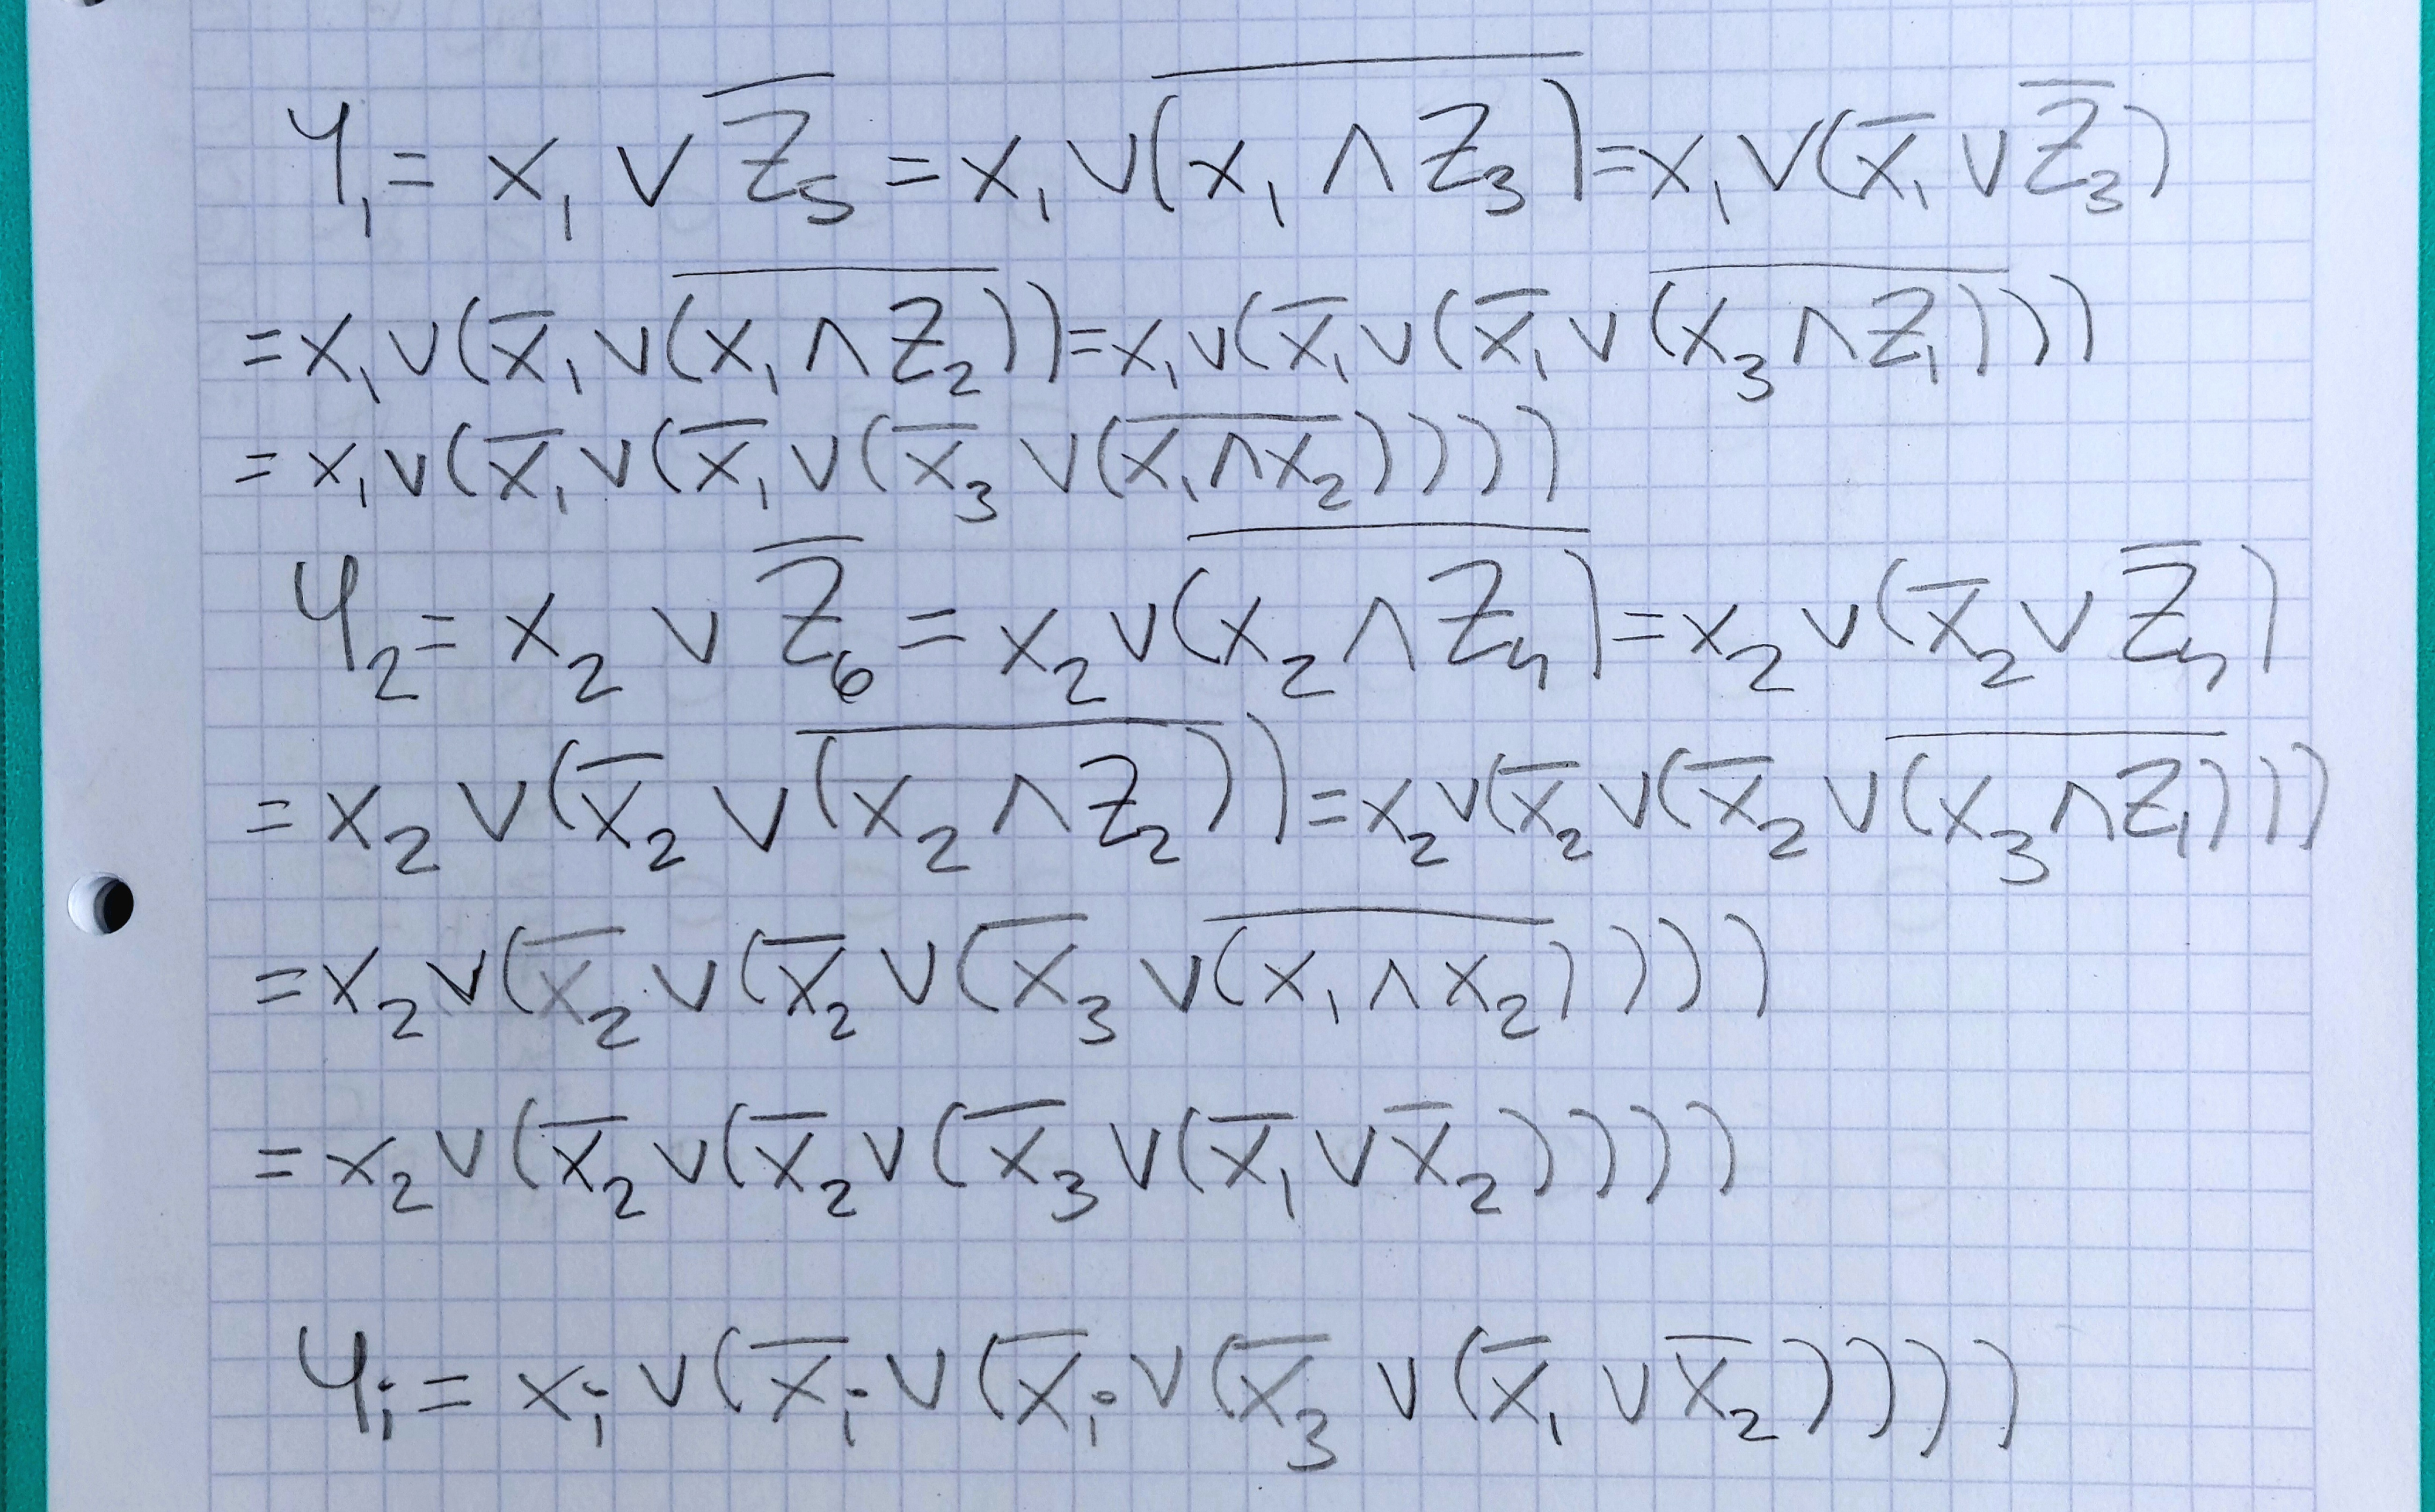 Y₁ = x₁ ∨ Z̅₅ = x₁ ∨ \overline{(x₁ ∧ Z₃)} = x₁ ∨ (x̅₁ ∨ Z̅₃)
= x₁ ∨ (x̅₁ ∨ \overline{(x₁ ∧ Z₂)}) = x₁ ∨ (x̅₁ ∨ (x̅₁ ∨ \overline{(x₃ ∧ Z₁)}))
= x₁ ∨ (x̅₁ ∨ (x̅₁ ∨ (x̅₃ ∨ (\overline{x₁ ∧ x₂}))))
Y₂ = x₂ ∨ Z̅₆ = x₂ ∨ \overline{(x₂ ∧ Z₄)} = x₂ ∨ (x̅₂ ∨ Z̅₄)
= x₂ ∨ (x̅₂ ∨ \overline{(x₂ ∧ Z₂)}) = x₂ ∨ (x̅₂ ∨ (x̅₂ ∨ \overline{(x₃ ∧ Z₁)}))
= x₂ ∨ (x̅₂ ∨ (x̅₂ ∨ (x̅₃ ∨ \overline{(x₁ ∧ x₂)})))
= x₂ ∨ (x̅₂ ∨ (x̅₂ ∨ (x̅₃ ∨ (x̅₁ ∨ x̅₂))))
Yᵢ = xᵢ ∨ (x̅ᵢ ∨ (x̅ᵢ ∨ (x̅₃ ∨ (x̅₁ ∨ x̅₂))))